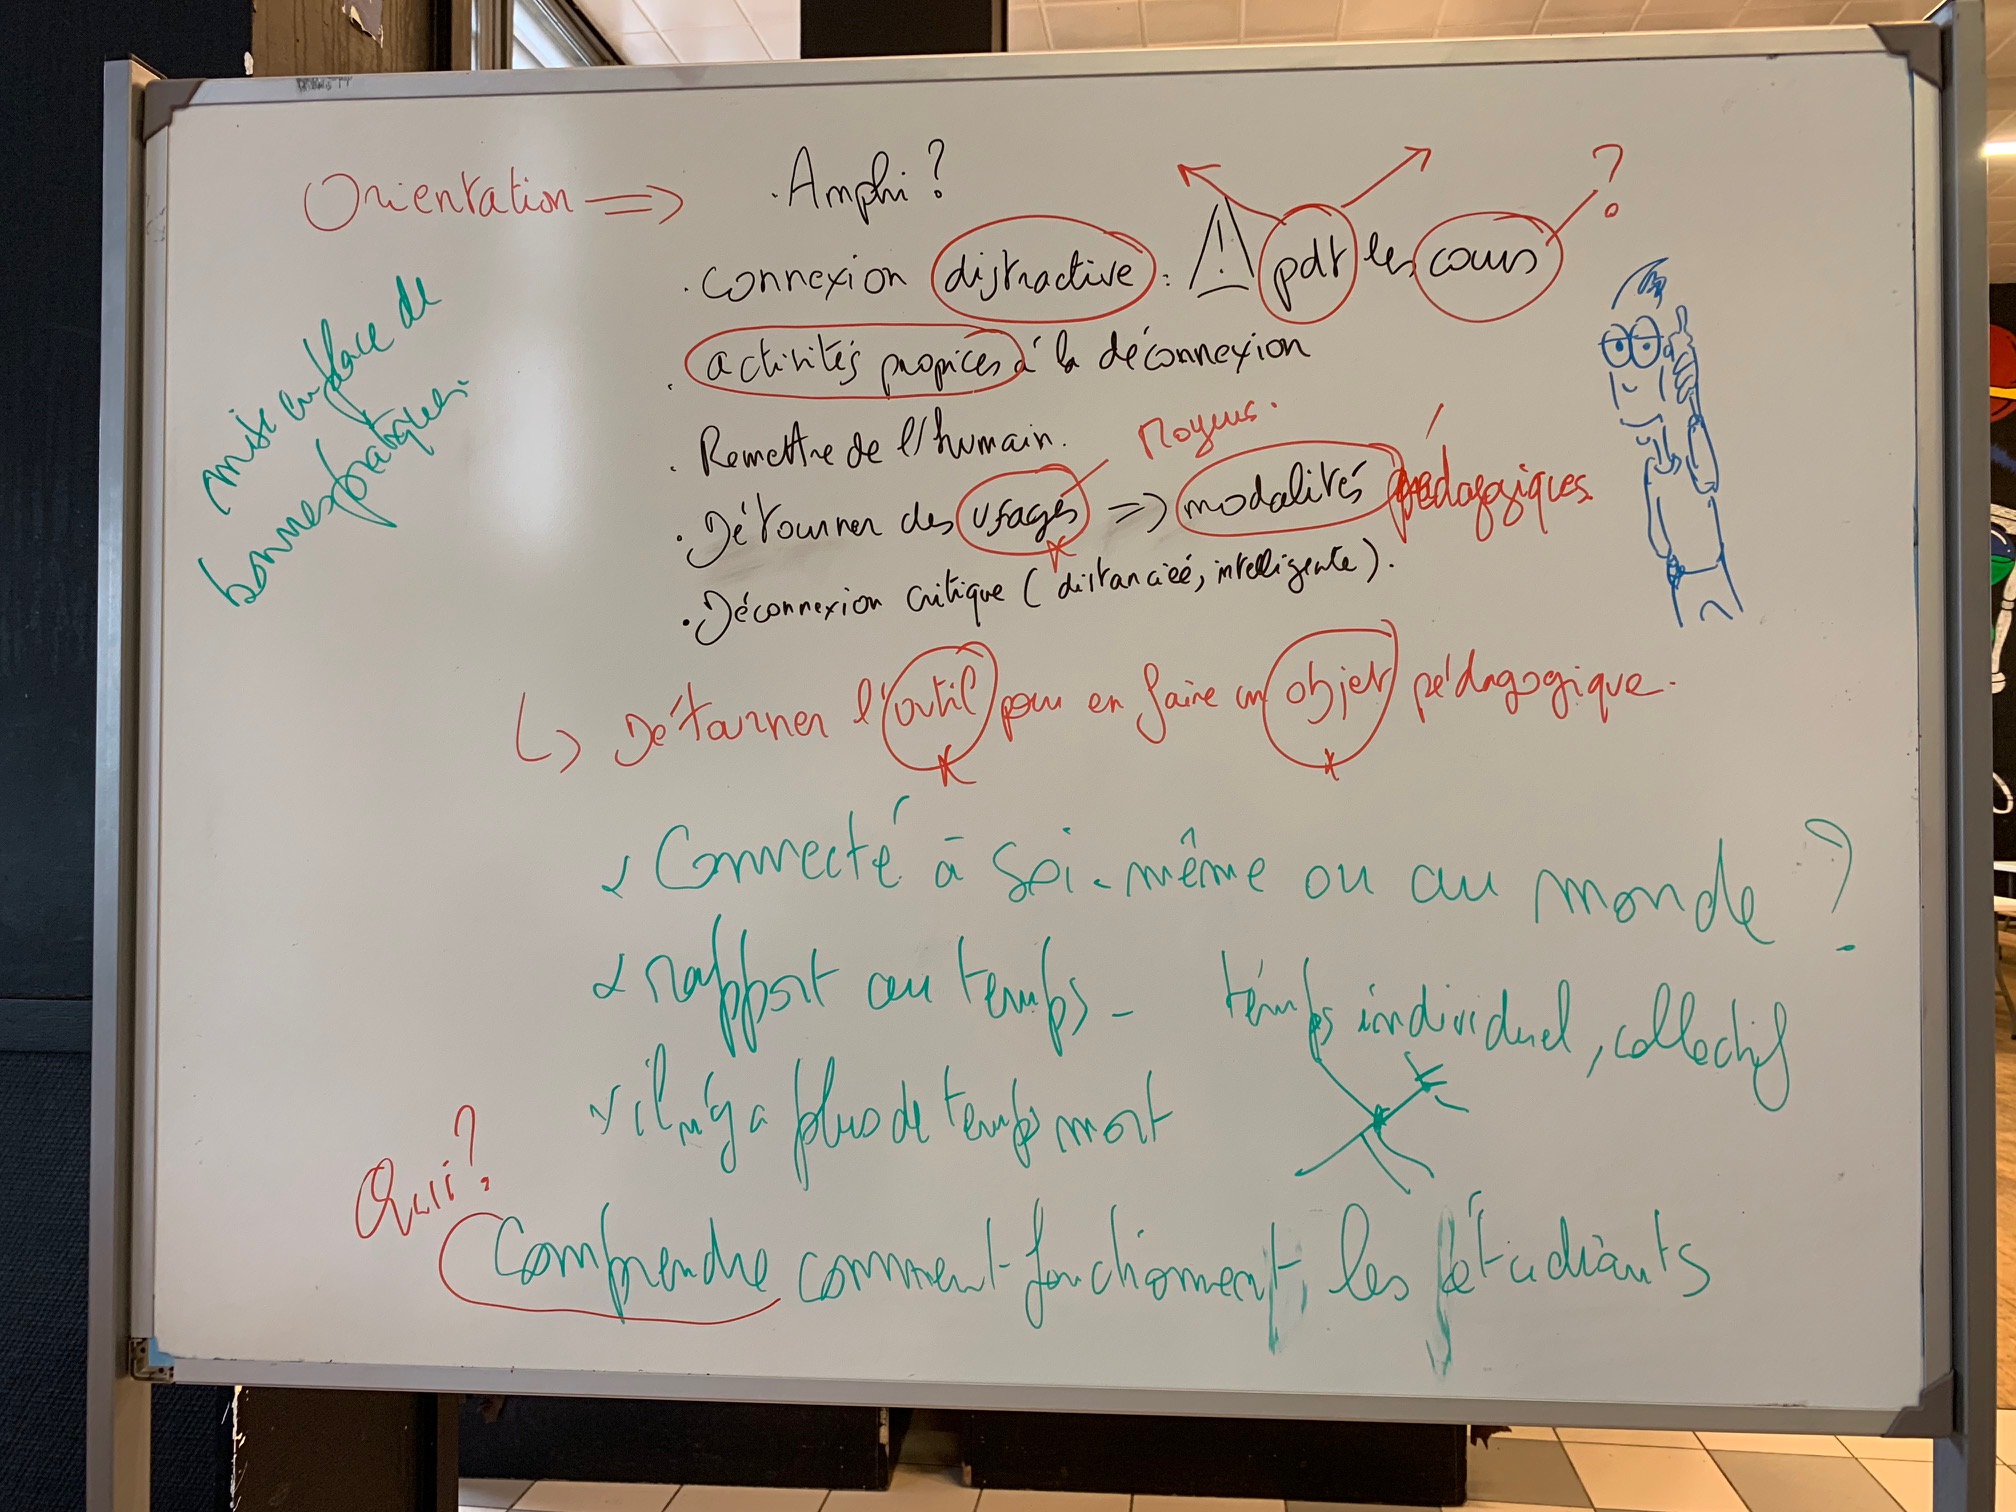 Orientation => . Amphi ?
. Connexion distractive : ⚠ pdt les cours ?
. activités propices à la déconnexion
. Remettre de l'humain.
Moyens.
. Détourner des usages => modalités pédagogiques.
. Déconnexion critique (distanciéé, intelligente).
↳ Détourner l'outil pour en faire un objet pédagogique.
mise en place de
bonnes pratiques.
Connecté à soi-même ou au monde ?
rapport au temps - temps individuel, collectif
il n'y a plus de temps mort
Qui ?
Comprendre comment fonctionnent les étudiants